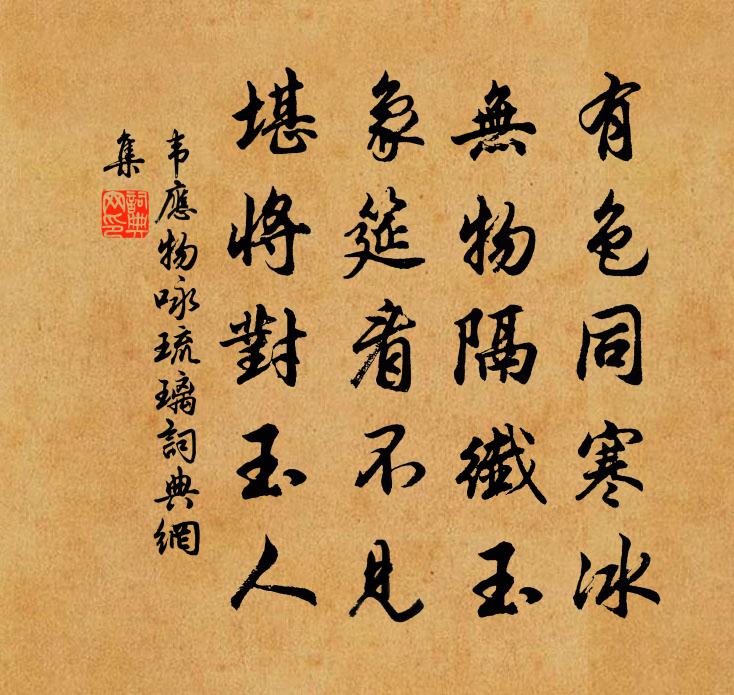 有色同寒冰
無物隔纖玉
象筵看不見
堪將對玉人
韦應物咏琉璃詞典網
集
詞典
网印